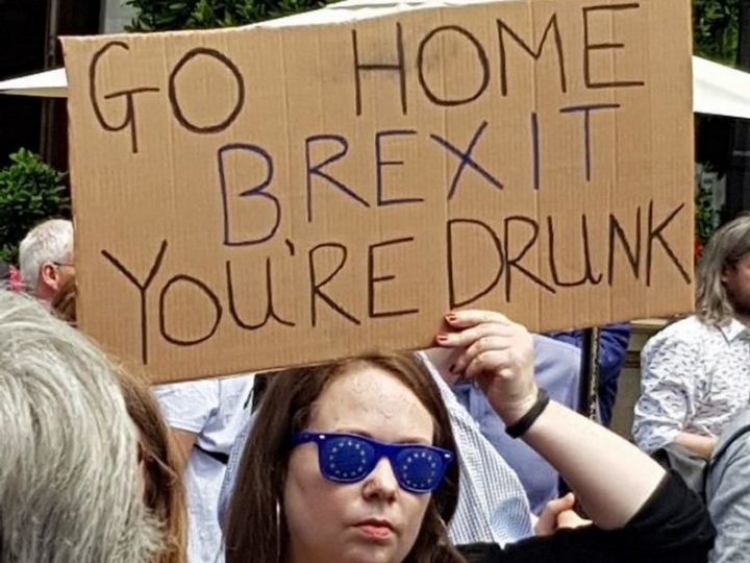 GO HOME
BREXIT
YOU'RE DRUNK